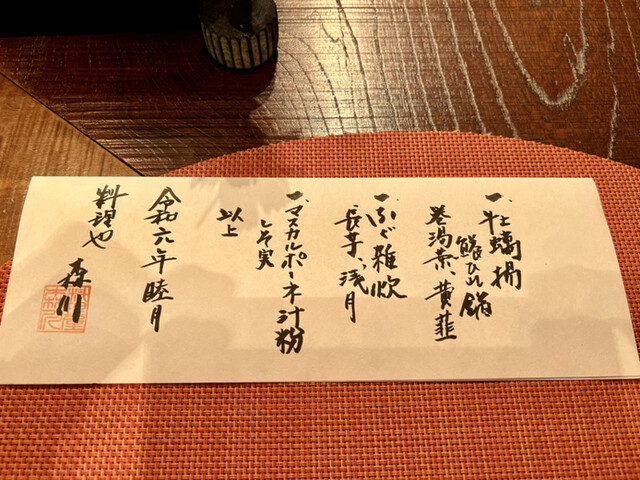 一、牡蠣揚
鱶ひれ餡
巻湯葉、黄韮
一、ふぐ雑炊
長芋、浅月
一、マスカルポーネ汁粉
しそ実
以上
令和六年睦月
料理也 森川